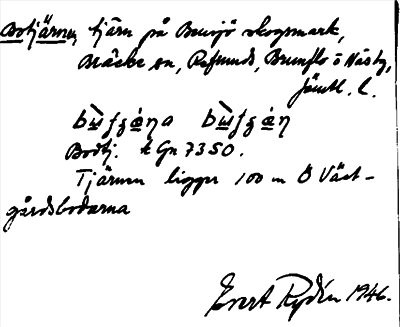 Botjärnen, tjärn på Bensjö skogsmark,
Bräcke sn, Refsunds, Brunflo o Näsby,
Jämtl. l.
Bodtj. k Gn 7350.
Tjärnen ligger 100 m Ö Väst-
gårdsbodarna
Evert Rydén 1946.